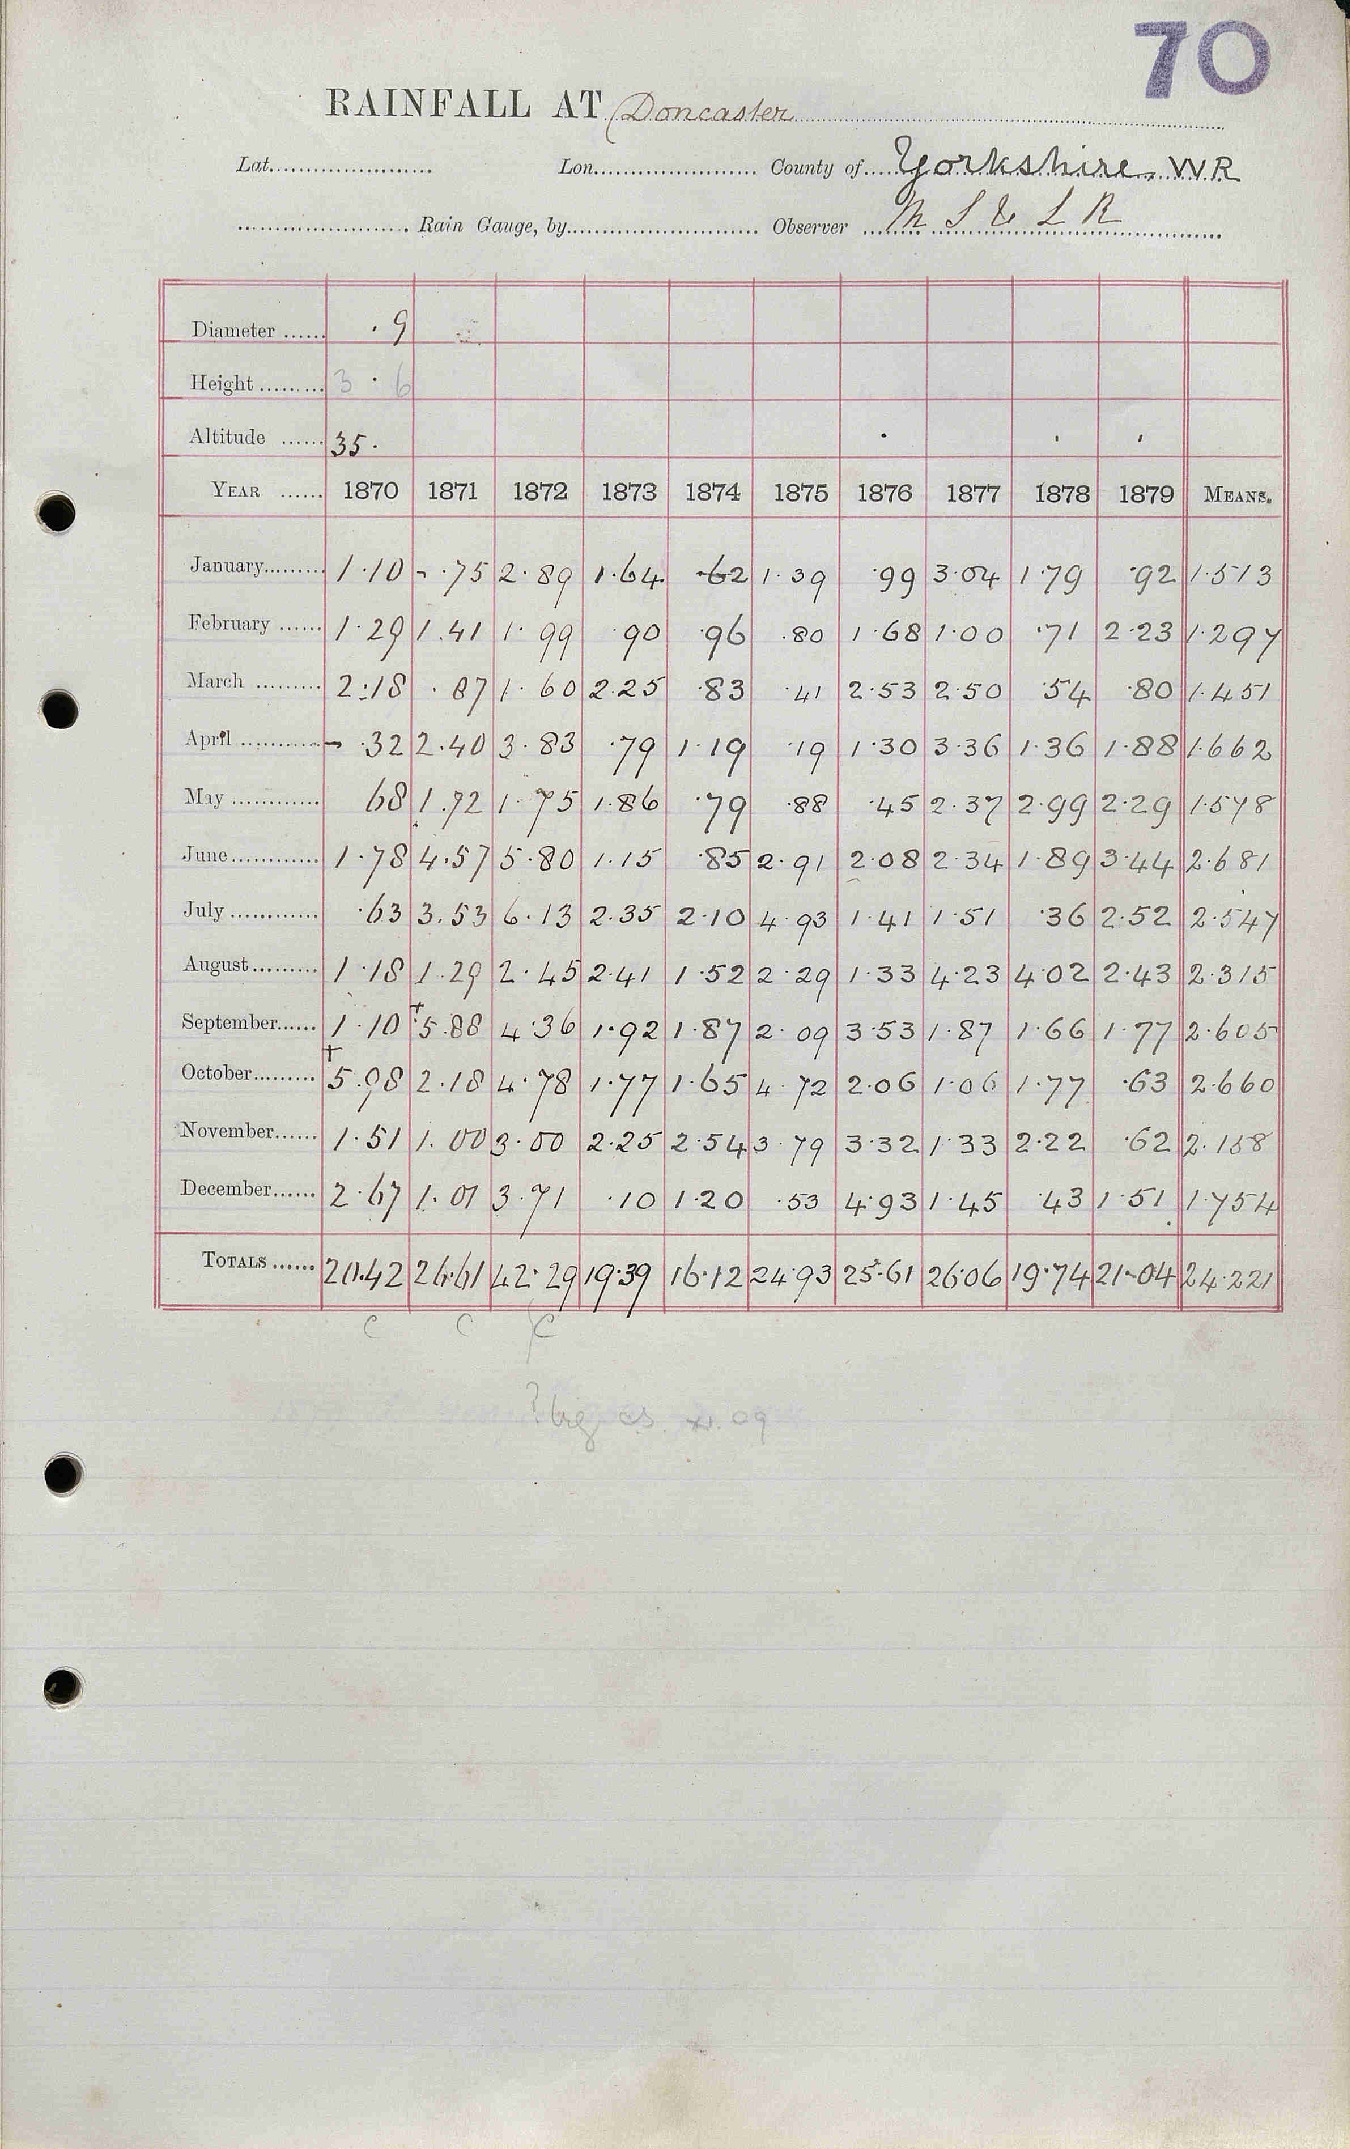 70
RAINFALL AT Doncaster
Lat. Lon. County of Yorkshire, WR
Rain Gauge, by Observer M S & L R
Diameter ...... ·9
Height ......... 3 · 6
Altitude ...... 35·
YEAR ...... 1870 1871 1872 1873 1874 1875 1876 1877 1878 1879 MEANS.
January......... 1·10 ·75 2·89 1·64 ·62 1·39 ·99 3·04 1·79 ·92 1·513
February ...... 1·29 1·41 1·99 90 ·96 ·80 1·68 1·00 ·71 2·23 1·297
March ......... 2·18 ·87 1·60 2·25 ·83 ·41 2·53 2·50 ·54 ·80 1·451
April ............ ·32 2·40 3·83 ·79 1·19 ·19 1·30 3·36 1·36 1·88 1·662
May ............ 68 1·72 1·75 1·86 ·79 ·88 ·45 2·37 2·99 2·29 1·578
June............ 1·78 4·57 5·80 1·15 ·85 2·91 2·08 2·34 1·89 3·44 2·681
July ............ ·63 3·53 6·13 2·35 2·10 4·93 1·41 1·51 ·36 2·52 2·547
August......... 1·18 1·29 2·45 2·41 1·52 2·29 1·33 4·23 4·02 2·43 2·315
September...... 1·10 +5·88 4·36 1·92 1·87 2·09 3·53 1·87 1·66 1·77 2·605
October......... +5·98 2·18 4·78 1·77 1·65 4·72 2·06 1·06 1·77 ·63 2·660
November...... 1·51 1·00 3·00 2·25 2·54 3·79 3·32 1·33 2·22 ·62 2·158
December...... 2·67 1·01 3·71 ·10 1·20 ·53 4·93 1·45 ·43 1·51 1·754
TOTALS ...... 20·42 26·61 42·29 19·39 16·12 24·93 25·61 26·06 19·74 21·04 24·221
C C C